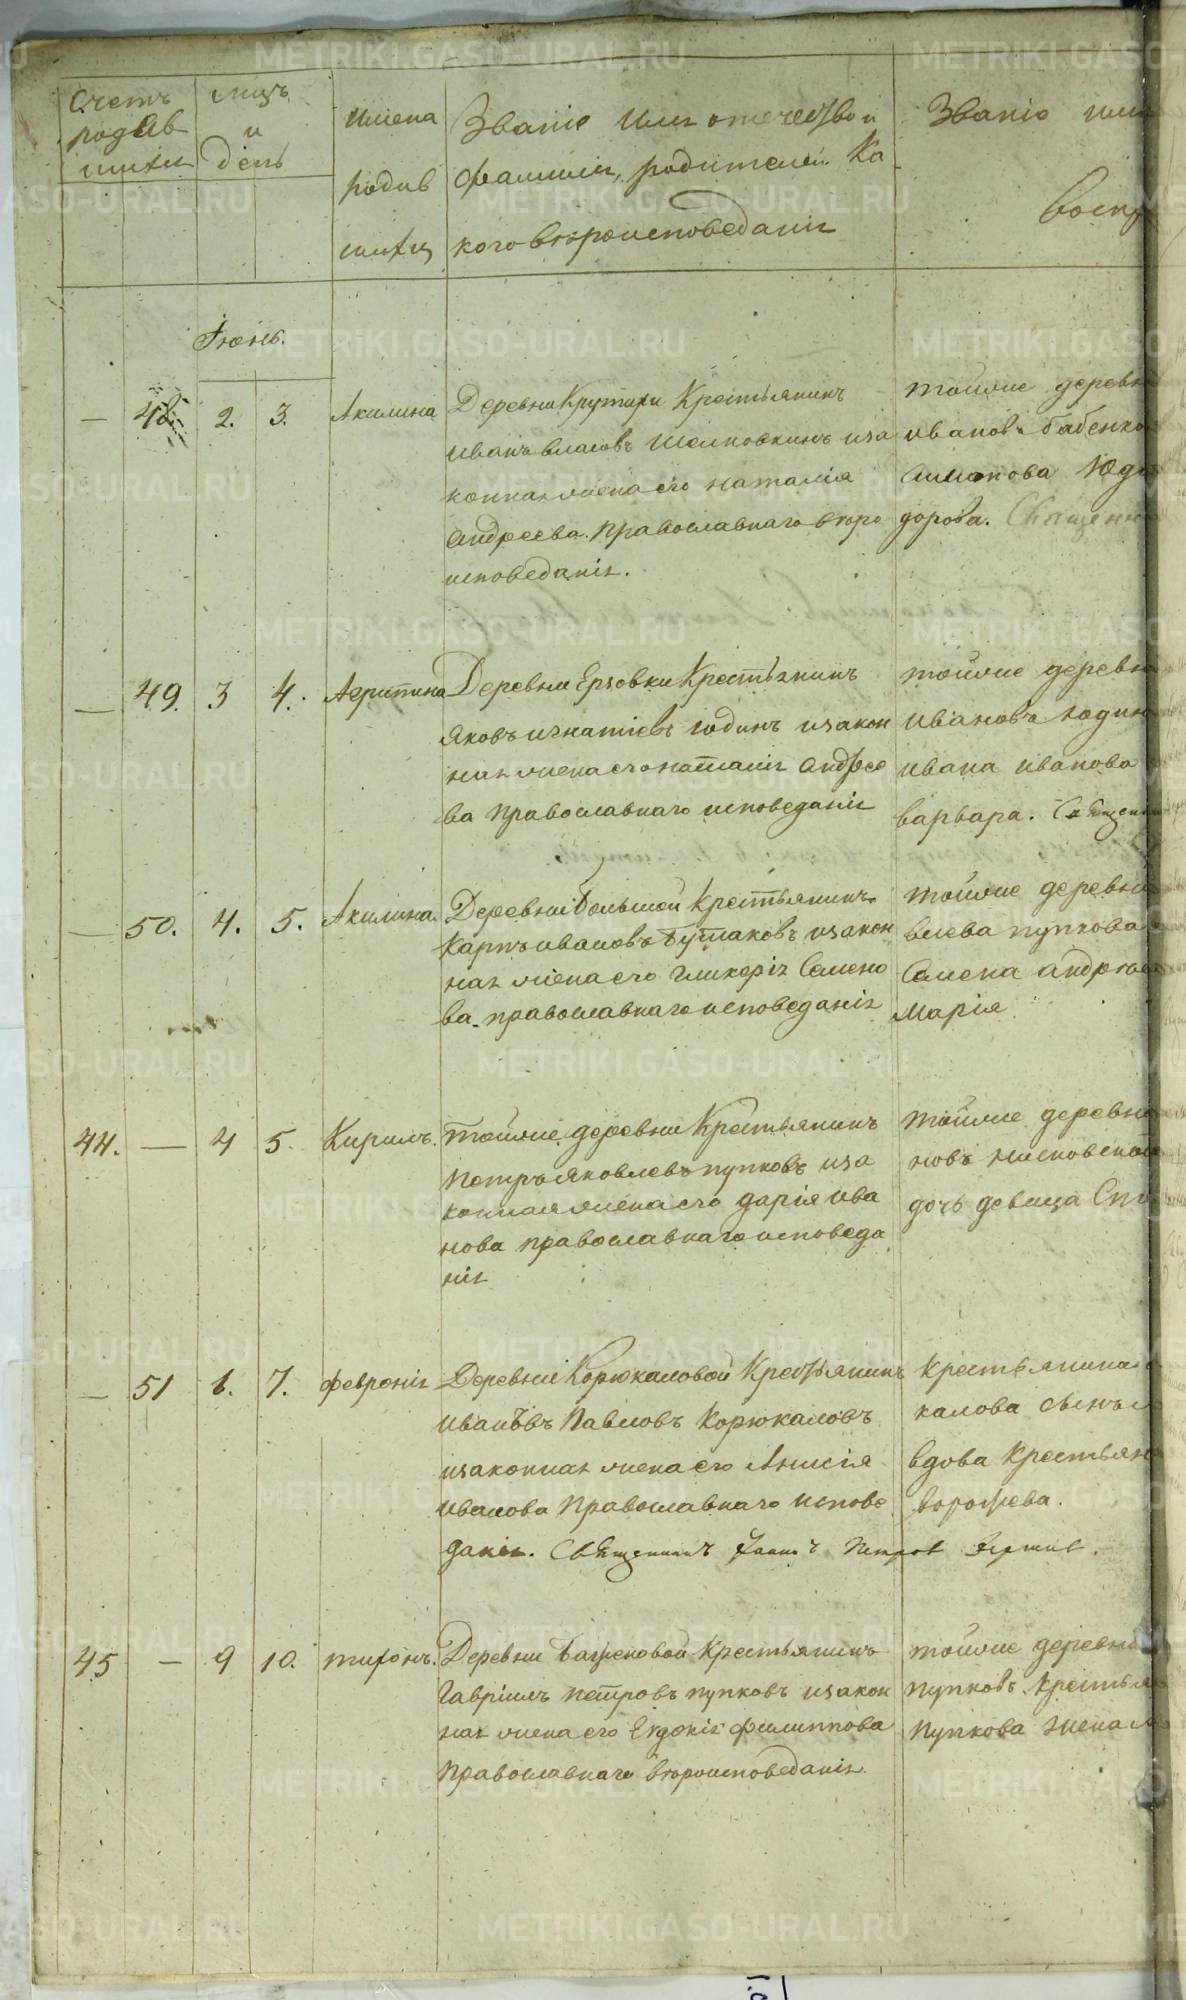 Счетъ родив шихся
мцъ и день
Имена родив шихся
Званіе имя отечество и фамилія, родителей. Ка кого вѣроисповеданія
Званіе имя
воспр
Іюнь.
— 48. 2. 3. Акилина
Деревни Крутихи Крестьянинъ
иванъ власовъ Шелковкинъ иза
конная жена его наталія
андреева. православнаго вѣро
исповеданія.
тойже деревни
иванов бабенко
дорова. Священни
— 49. 3 4. Агрипина
Деревни Ерзовки Крестьянинъ
яковъ игнатіевъ юдинъ изакон
ная жена его наталія андрее
ва православнаго исповеданія
тойже деревни
ивановъ юдин
ивана иванова
варвара. Священни
— 50. 4. 5. Акилина.
Деревни большой Крестьянинъ
Карпъ ивановъ Бутаковъ изакон
ная жена его гликерія Семено
ва. православнаго исповеданія
тойже деревни
пупкова
Семена андреев
Марія
44. — 4 5. Кирилъ.
тойже деревни Крестьянинъ
петръ яковлевъ пупковъ иза
конная жена его дарія ива
нова православнаго исповеда
нія
тойже деревни
новъ
дочь девица Сп
— 51 6. 7. февронія
Деревни Корюкаловой Крестьянинъ
Павловъ Корюкаловъ
изаконная жена его Анисія
иванова Православнаго испове
данія. Священникъ Іоаннъ Петров
крестьянина
калова сынъ
вдова Крестьян
45 — 9 10. тихонъ.
Деревни Баженовой Крестьянинъ
Гавріилъ петровъ пупковъ изакон
ная жена его Евдокія филиппова
Православнаго вѣроисповеданія.
тойже деревни
пупковъ. Крестья
пупкова жена
METRIKI.GASO-URAL.RU